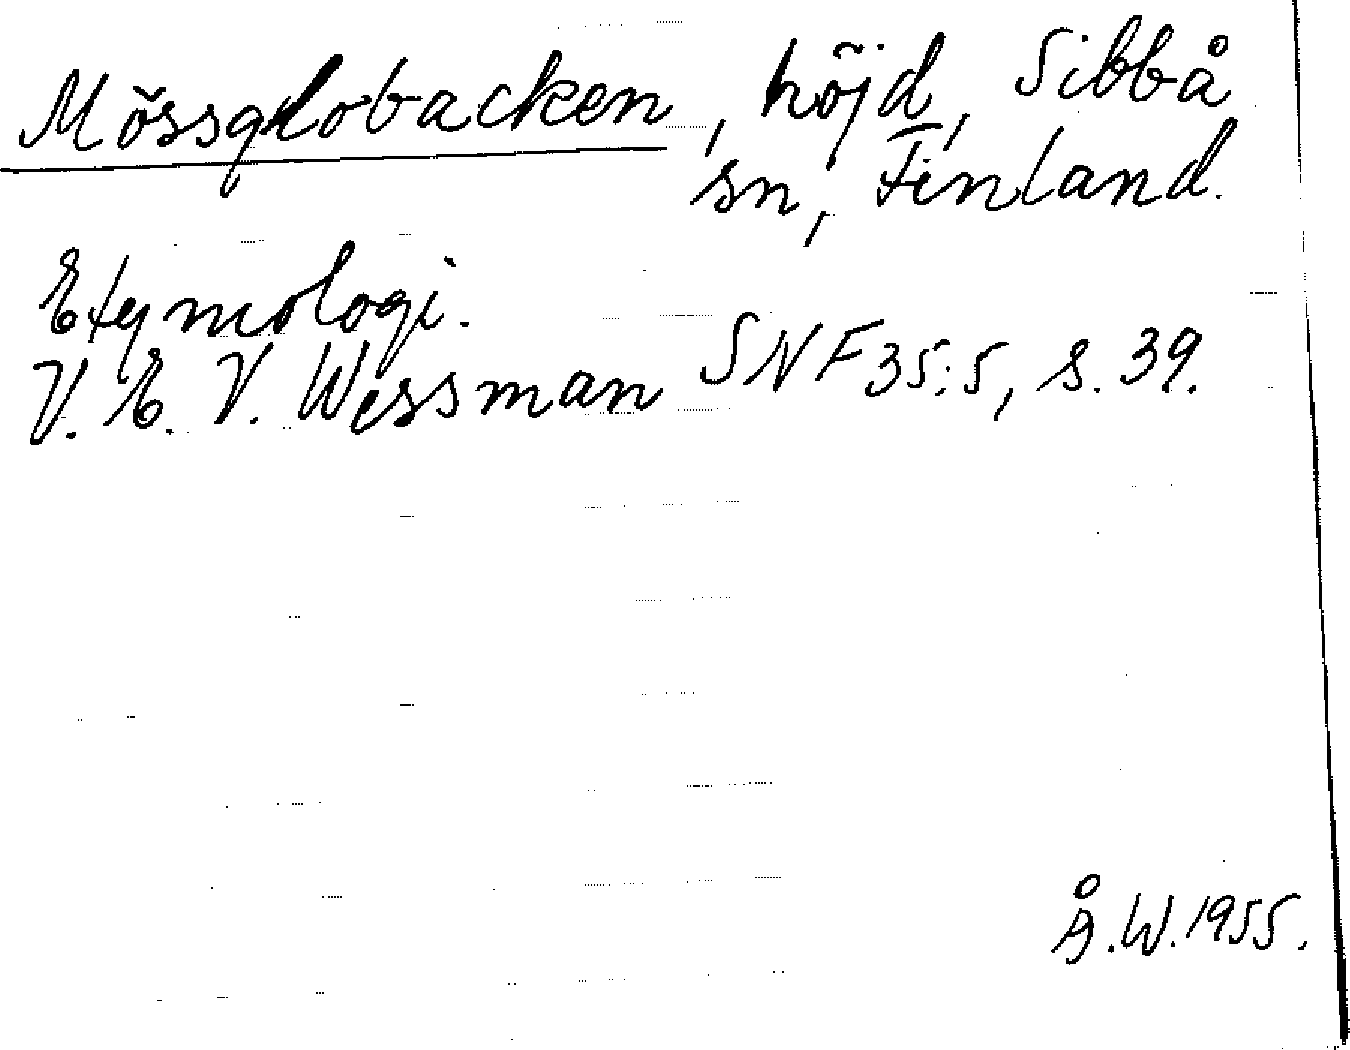 Mössglobacken, höjd, Sibbå
sn, Finland.
Etymologi.
V. E. V. Wessman SNF 35:5, s. 39.
Å.W. 1955.